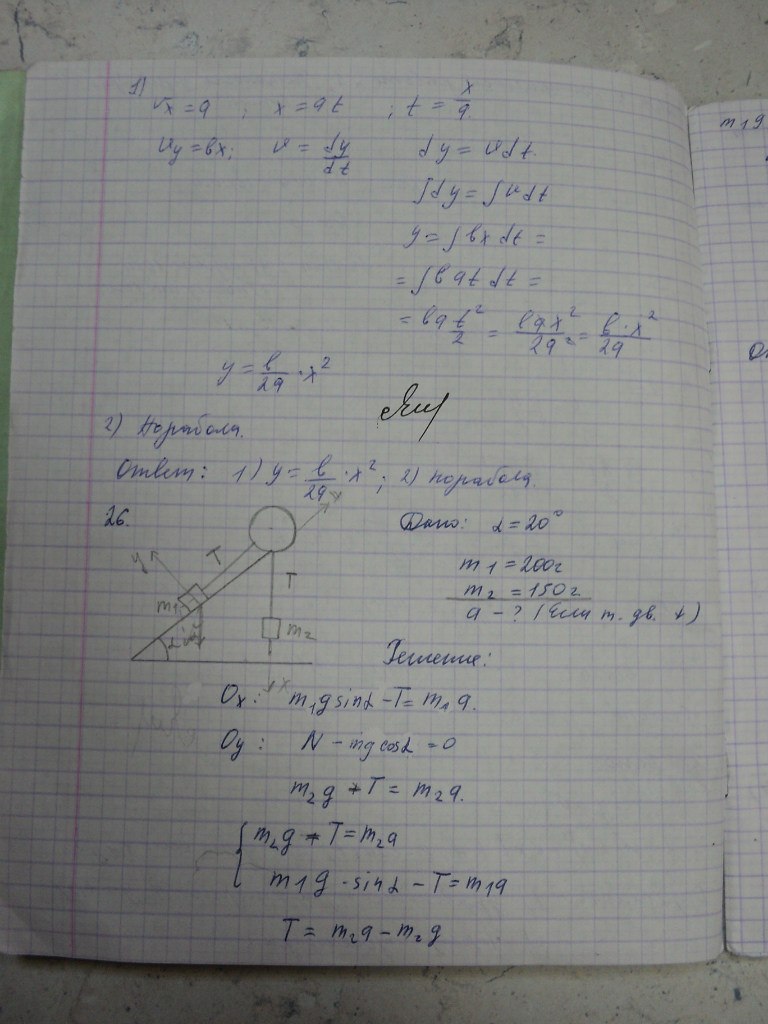 1)
Vx = a ; x = at ; t = x/a
Vy = вx; v = dy/dt dy = vdt.
∫dy = ∫vdt
y = ∫ вx dt =
= ∫ в at dt =
= вa t²/2 = вax²/2a² = в·x²/2a
y = в/2a · x²
2) Порабола.
Ответ: 1) y = в/2a · x²; 2) порабола.
26. Дано: α = 20°
y x
T T
m1 = 200г
m1 m2 α
m2 = 150г
a - ? (Если т. дв. ↓)
x
Решение:
Ox: m1g sinα - T = m1a.
Oy: N - mg cosα = 0
m2g + T = m2a.
m2g + T = m2a
m1g · sinα - T = m1a
T = m2a - m2g
m1g
От